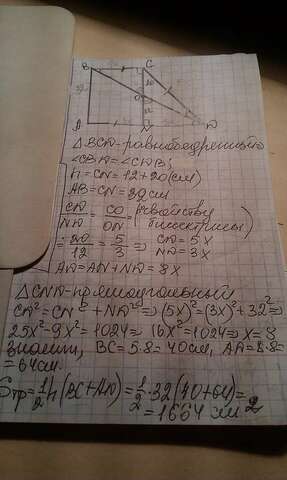 B C
20
O
12
A N D
△BCD-равнобедренный
∠CBD = ∠CDB;
h = CN = 12+20 (см)
AB = CN = 32см
CD/ND = CO/ON = (свойству биссектрисы)
= 20/12 = 5/3 => CD = 5x
ND = 3x
AD = AN + ND = 8x
△CND-прямоугольный
CD² = CN² + ND² => (5x)² = (3x)² + 32² =>
25x² - 9x² = 1024 => 16x² = 1024 => x = 8
значит, BC = 5·8 = 40см, AD = 8·8 =
= 64см.
Sтр = 1/2 h (BC + AD) = 1/2 · 32 (40 + 64) =
= 1664 см²